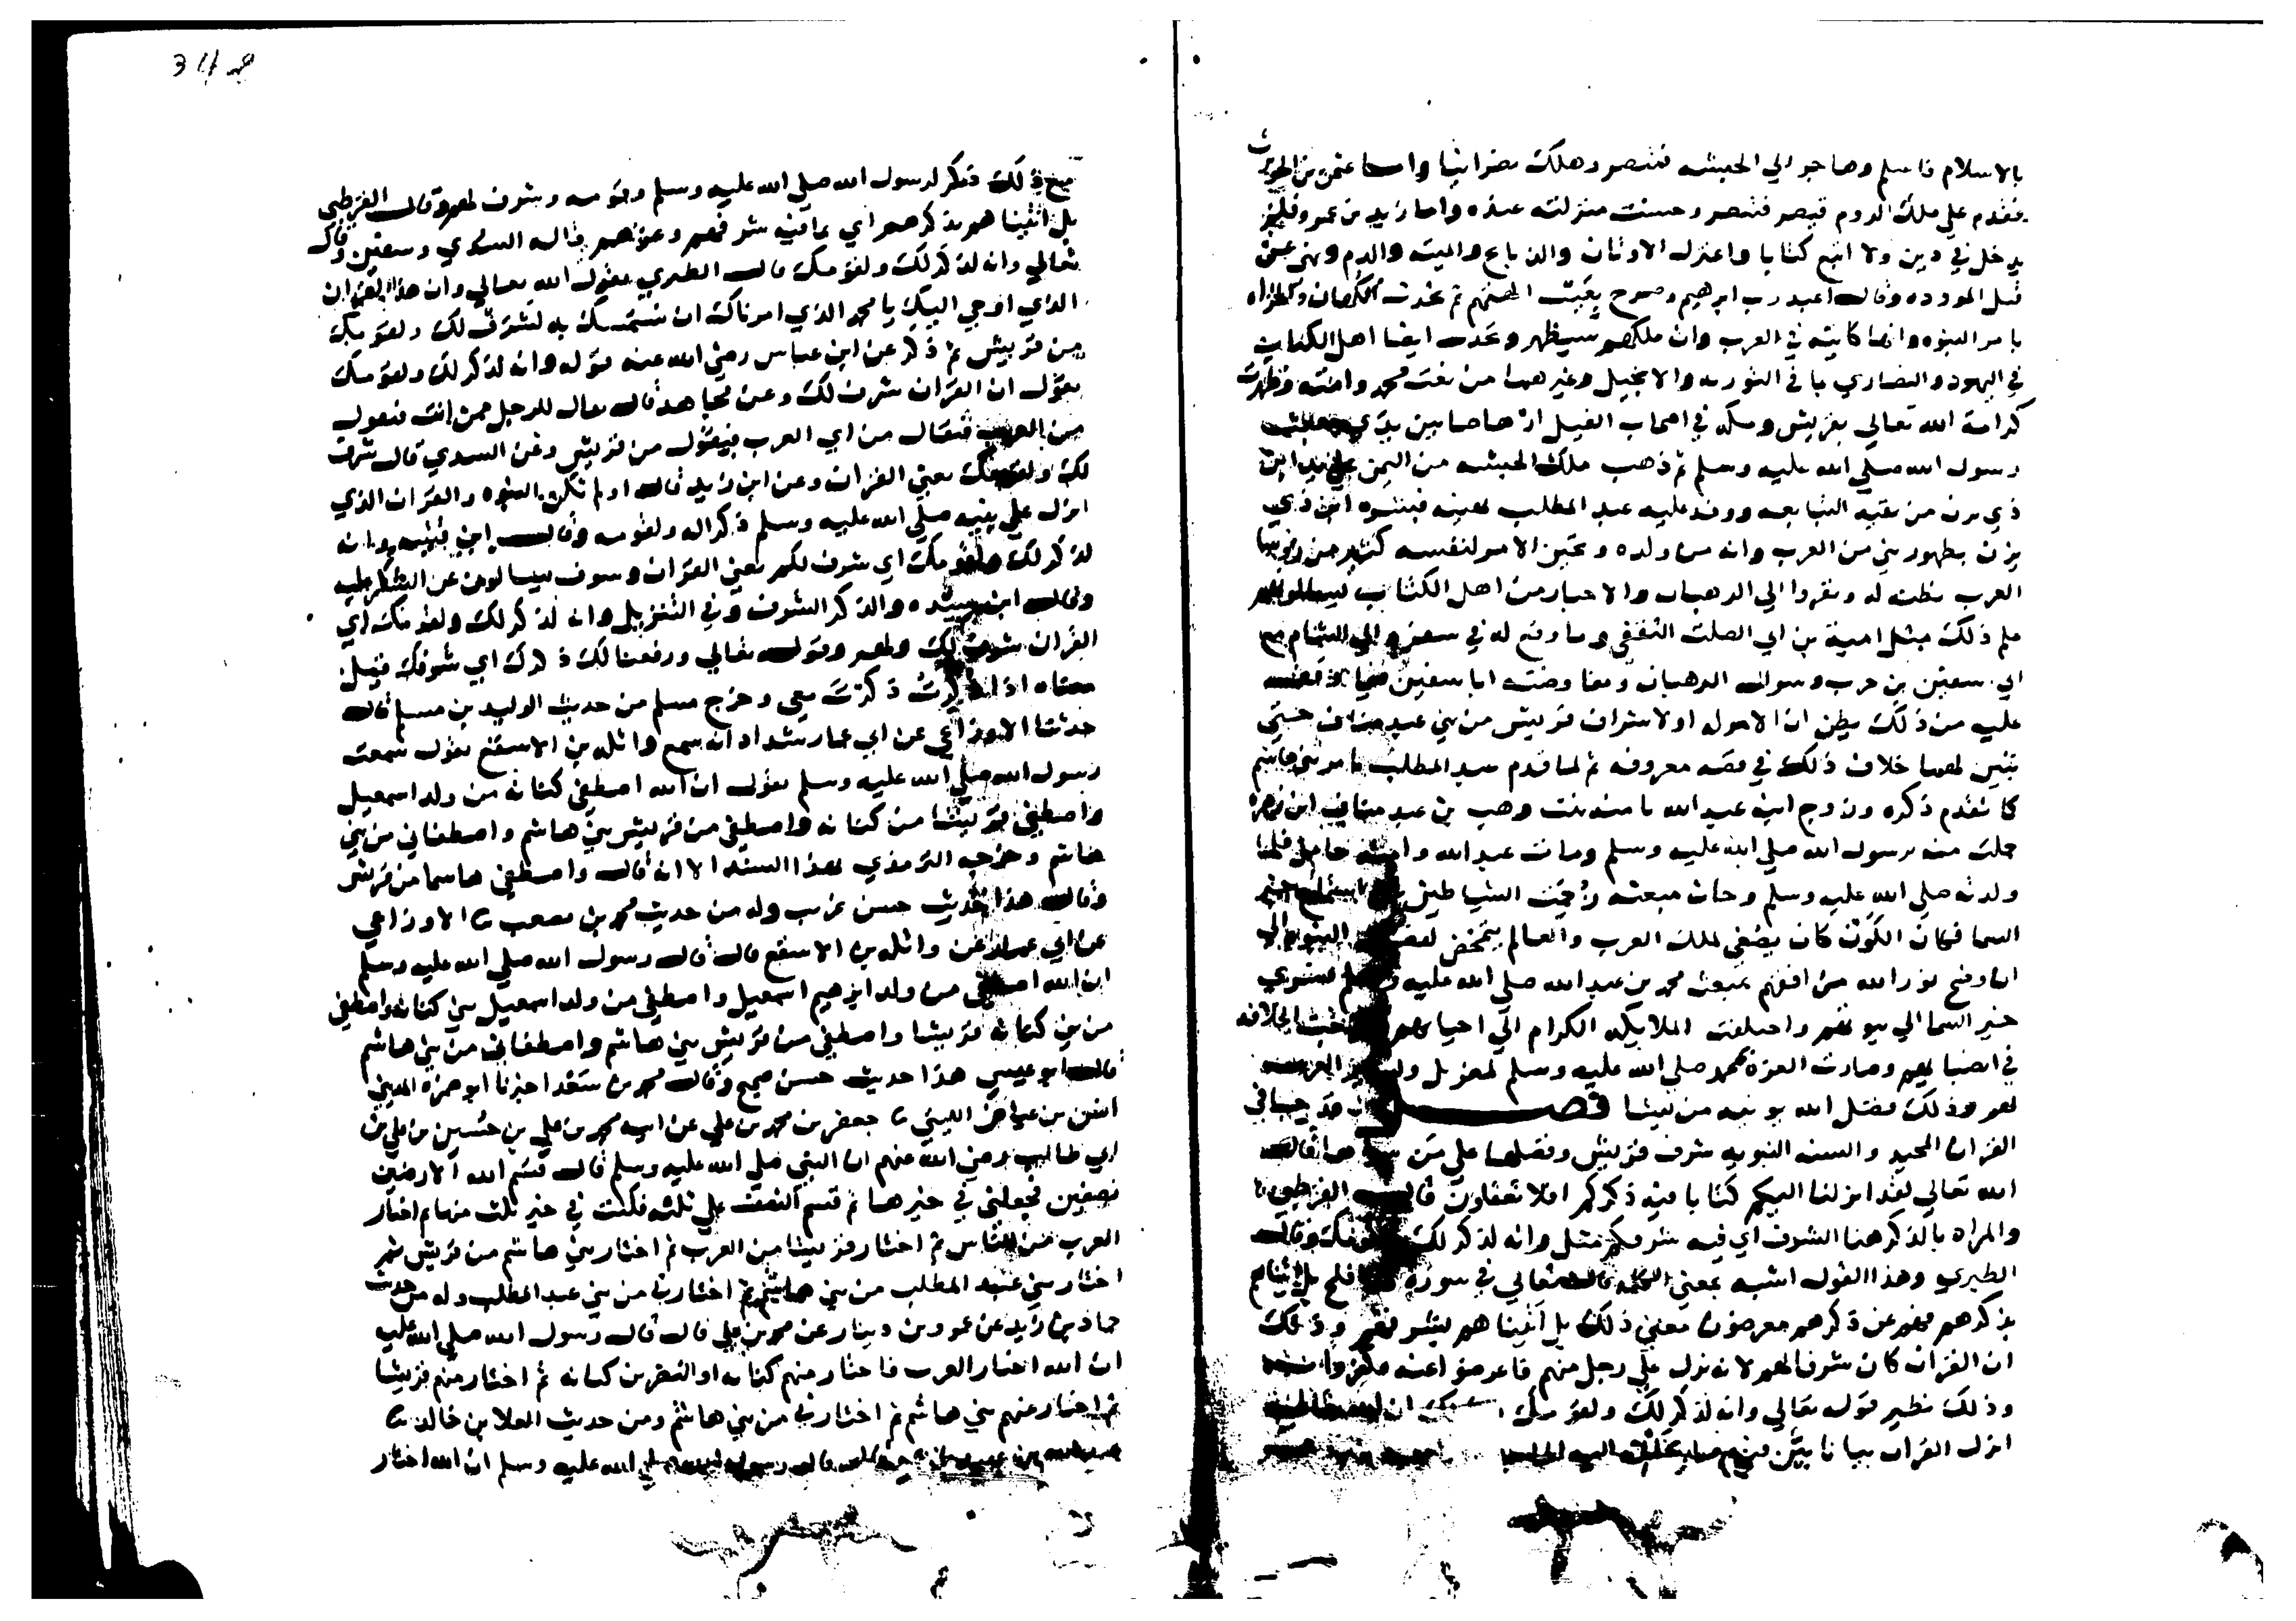 بالاسلام فاسلم وهاجر الي الحبشه فتنصر وهلك نصرانيا واما عثمن بن الحويرث
فقدم علي ملك الروم قيصر فتنصر وحسنت منزلته عنده واما زيد بن عمرو فلم
يدخل في دين ولا اتبع كتابا واعتزل الاوثان والذبايح والميته والدم ونهي عن
قتل المووده وقال اعبد رب ابرهيم وصرح بعيب الهتهم ثم تحدث الكهان والحزاه
بامر النبوه وانها كاينه في العرب وان ملكهم سيظهر وتحدث ايضا اهل الكتاب
في اليهود والنصاري بما في التوريه والانجيل وغيرهما من نعت محمد وامته وظهرت
كرامة الله تعالي بقريش ومكه في اصحاب الفيل ارهاصا بين يدي
رسول الله صلي الله عليه وسلم ثم ذهب ملك الحبشه من اليمن علي يد ابن
ذي يزن من بقيه التبابعه ووفد عليه عبد المطلب فبشره ابن ذي
يزن بظهور نبي من العرب وانه من ولده وتحين الامر لنفسه كثير من روسا
العرب يظنه له ونفروا الي الرهبان والاحبار من اهل الكتاب
علم ذلك مثل امية بن ابي الصلت الثقفي وما وقع له في سفره الي الشام مع
ابي سفين بن حرب وسواله الرهبان ومفاوضته ابا سفين فيما وقف
عليه من ذلك يظن ان الامر له او لاشراف قريش من بني عبد مناف حتي
تبين لهما خلاف ذلك في قصه معروفه ثم لما قدم عبد المطلب
كما تقدم ذكره وزوج ابنه عبد الله بامنه بنت وهب بن عبد مناف ابن زهرة
حملت منه برسول الله صلي الله عليه وسلم ومات عبد الله وامنه حامل فلما
ولدته صلي الله عليه وسلم وحان مبعثه رجمت الشياطين
السما فكان الكون كان يصغي لملك العرب والعالم يتمخض
ان وضح نور الله من افقهم بمبعث محمد بن عبد الله صلي الله عليه وسلم
خبر السما الي بيوتهم واختلفت الملايكه الكرام الي احيايهم الخلافه
في اعقابهم وصارت العزة بمحمد صلي الله عليه وسلم
لهم وذلك فضل الله يوتيه من يشا فصـــل قد جا في
القران المجيد والسنه النبويه شرف قريش وفضلها علي من سواها قال
الله تعالي لقد انزلنا اليكم كتابا فيه ذكركم افلا تعقلون قال القرطبي
والمراد بالذكر هنا الشرف اي فيه شرفكم مثل وانه لذكر لك ولقومك وقال
الطبري وهذا القول اشبه بمعني الكلمه قال تعالي في سورة افلح بل اتيناهم
بذكرهم فهم عن ذكرهم معرضون معني ذلك بل اتيناهم بشرفهم وذلك
ان القران كان شرفا لهم لانه نزل علي رجل منهم فاعرضوا عنه وكفروا
وذلك نظير قوله تعالي وانه لذكر لك ولقومك
انزل القران بيانا بين فيه
مع ذلك ذكر لرسول الله صلي الله عليه وسلم وقومه وشرف لهم وقال القرطبي
بل اتيناهم بذكرهم اي بما فيه شرفهم وعزهم قاله السدي وسفين وقال
تعالي وانه لذكر لك ولقومك قال الطبري يقول الله تعالي وان هذا القران
الذي اوحي اليك يا محمد الذي امرناك ان تستمسك به لشرف لك ولقومك
من قريش ثم ذكر عن ابن عباس رضي الله عنه قوله وانه لذكر لك ولقومك
يقول ان القران شرف لك وعن مجاهد قال يقال للرجل ممن انت فيقول
من العرب فيقال من اي العرب فيقول من قريش وعن السدي قال شرف
لك ولقومك يعني القران وعن ابن زيد قال اولم تكن النبوه والقران الذي
انزل علي نبيه صلي الله عليه وسلم ذكرا له ولقومه وقال ابن قتيبه وانه
لذكر لك ولقومك اي شرف لكم يعني القران وسوف تسالون عن الشكر عليه
وقال ابن سيده والذكر الشرف وفي التنزيل وانه لذكر لك ولقومك اي
القران شرف لك ولهم وقوله تعالي ورفعنا لك ذكرك اي شرفك قيل
معناه اذا ذكرت ذكرت معي وخرج مسلم من حديث الوليد بن مسلم قال
حدثنا الاوزاعي عن ابي عمار شداد انه سمع واثله بن الاسقع يقول سمعت
رسول الله صلي الله عليه وسلم يقول ان الله اصطفي كنانه من ولد اسمعيل
واصطفي قريشا من كنانه واصطفي من قريش بني هاشم واصطفاني من بني
هاشم وخرجه الترمذي بهذا السند الا انه قال واصطفي هاشما من قريش
وقال هذا حديث حسن غريب وله من حديث محمد بن مصعب نا الاوزاعي
عن ابي عمار عن واثله بن الاسقع قال قال رسول الله صلي الله عليه وسلم
ان الله اصطفي من ولد ابرهيم اسمعيل واصطفي من ولد اسمعيل بني كنانه واصطفي
من بني كنانه قريشا واصطفي من قريش بني هاشم واصطفاني من بني هاشم
قال ابو عيسي هذا حديث حسن صحيح وقال محمد بن سعد اخبرنا ابو ضمره المديني
انس بن عياض الليثي نا جعفر بن محمد بن علي عن ابيه محمد بن علي بن حسين بن علي بن
ابي طالب رضي الله عنهم ان النبي صلي الله عليه وسلم قال قسم الله الارضين
نصفين فجعلني في خيرهما ثم قسم النصف علي ثلثه فكنت في خير ثلث منها ثم اختار
العرب من الناس ثم اختار قريشا من العرب ثم اختار بني هاشم من قريش ثم
اختار بني عبد المطلب من بني هاشم ثم اختارني من بني عبد المطلب وله من حديث
حماد بن زيد عن عمرو بن دينار عن محمد بن علي قال قال رسول الله صلي الله عليه
ان الله اختار العرب فاختار منهم كنانه او النضر بن كنانه ثم اختار منهم قريشا
ثم اختار منهم بني هاشم ثم اختارني من بني هاشم ومن حديث العلا بن خالد نا
قال رسول الله صلي الله عليه وسلم ان الله اختار
348